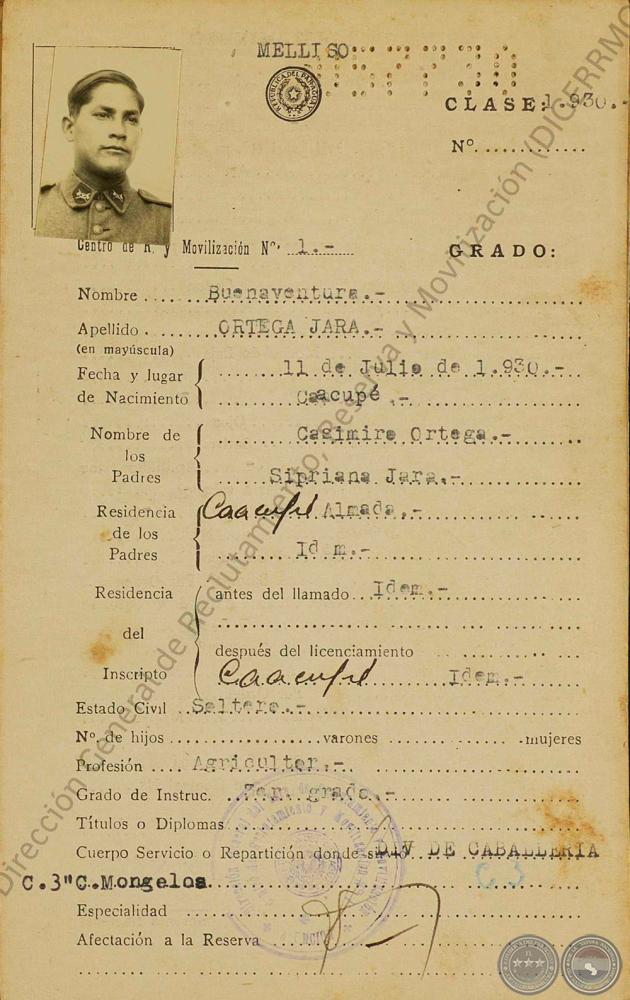 MELLISO
REPUBLICA DEL PARAGUAY
CLASE: 1.930.-
Nº.............
Centro de R. y Movilización Nº. 1.-
GRADO:
Nombre .... Buenaventura.-
Apellido . ORTEGA JARA.-
(en mayúscula)
Fecha y lugar de Nacimiento
11 de Julio de 1.930.-
Caacupé .-
Nombre de los Padres
Casimiro Ortega.-
Sipriana Jara.-
Residencia de los Padres
Caacupé Almada.-
Id m.-
Residencia del Inscripto
antes del llamado... Idem.-
después del licenciamiento
Caacupé Idem.-
Estado Civil Soltero.-
Nº. de hijos .................varones ..................mujeres
Profesión .... Agricultor.-
Grado de Instruc. grado.-
Títulos o Diplomas
Cuerpo Servicio o Repartición donde sirvió DIV DE CABALLERIA
C.3"C.Mongelos
Especialidad
Afectación a la Reserva
Dirección General de Reclutamiento, Reserva y Movilización (DIGERRMO